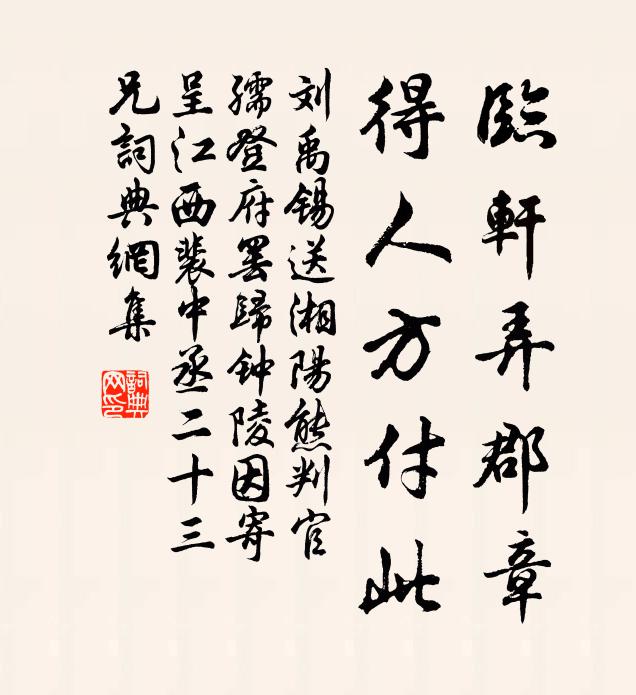 臨軒弄郡章
得人方付此
刘禹锡送湘陽熊判官
孺登府罢歸钟陵因寄
呈江西裴中丞二十三
兄詞典網集
詞典网印